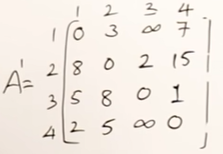 1 2 3 4
1 0 3 ∞ 7
A¹= 2 8 0 2 15
3 5 8 0 1
4 2 5 ∞ 0